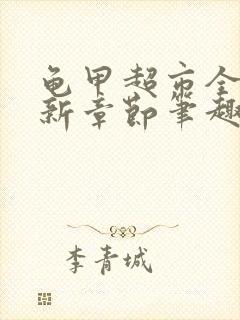 龟甲超市全
新章节笔趣
李青城